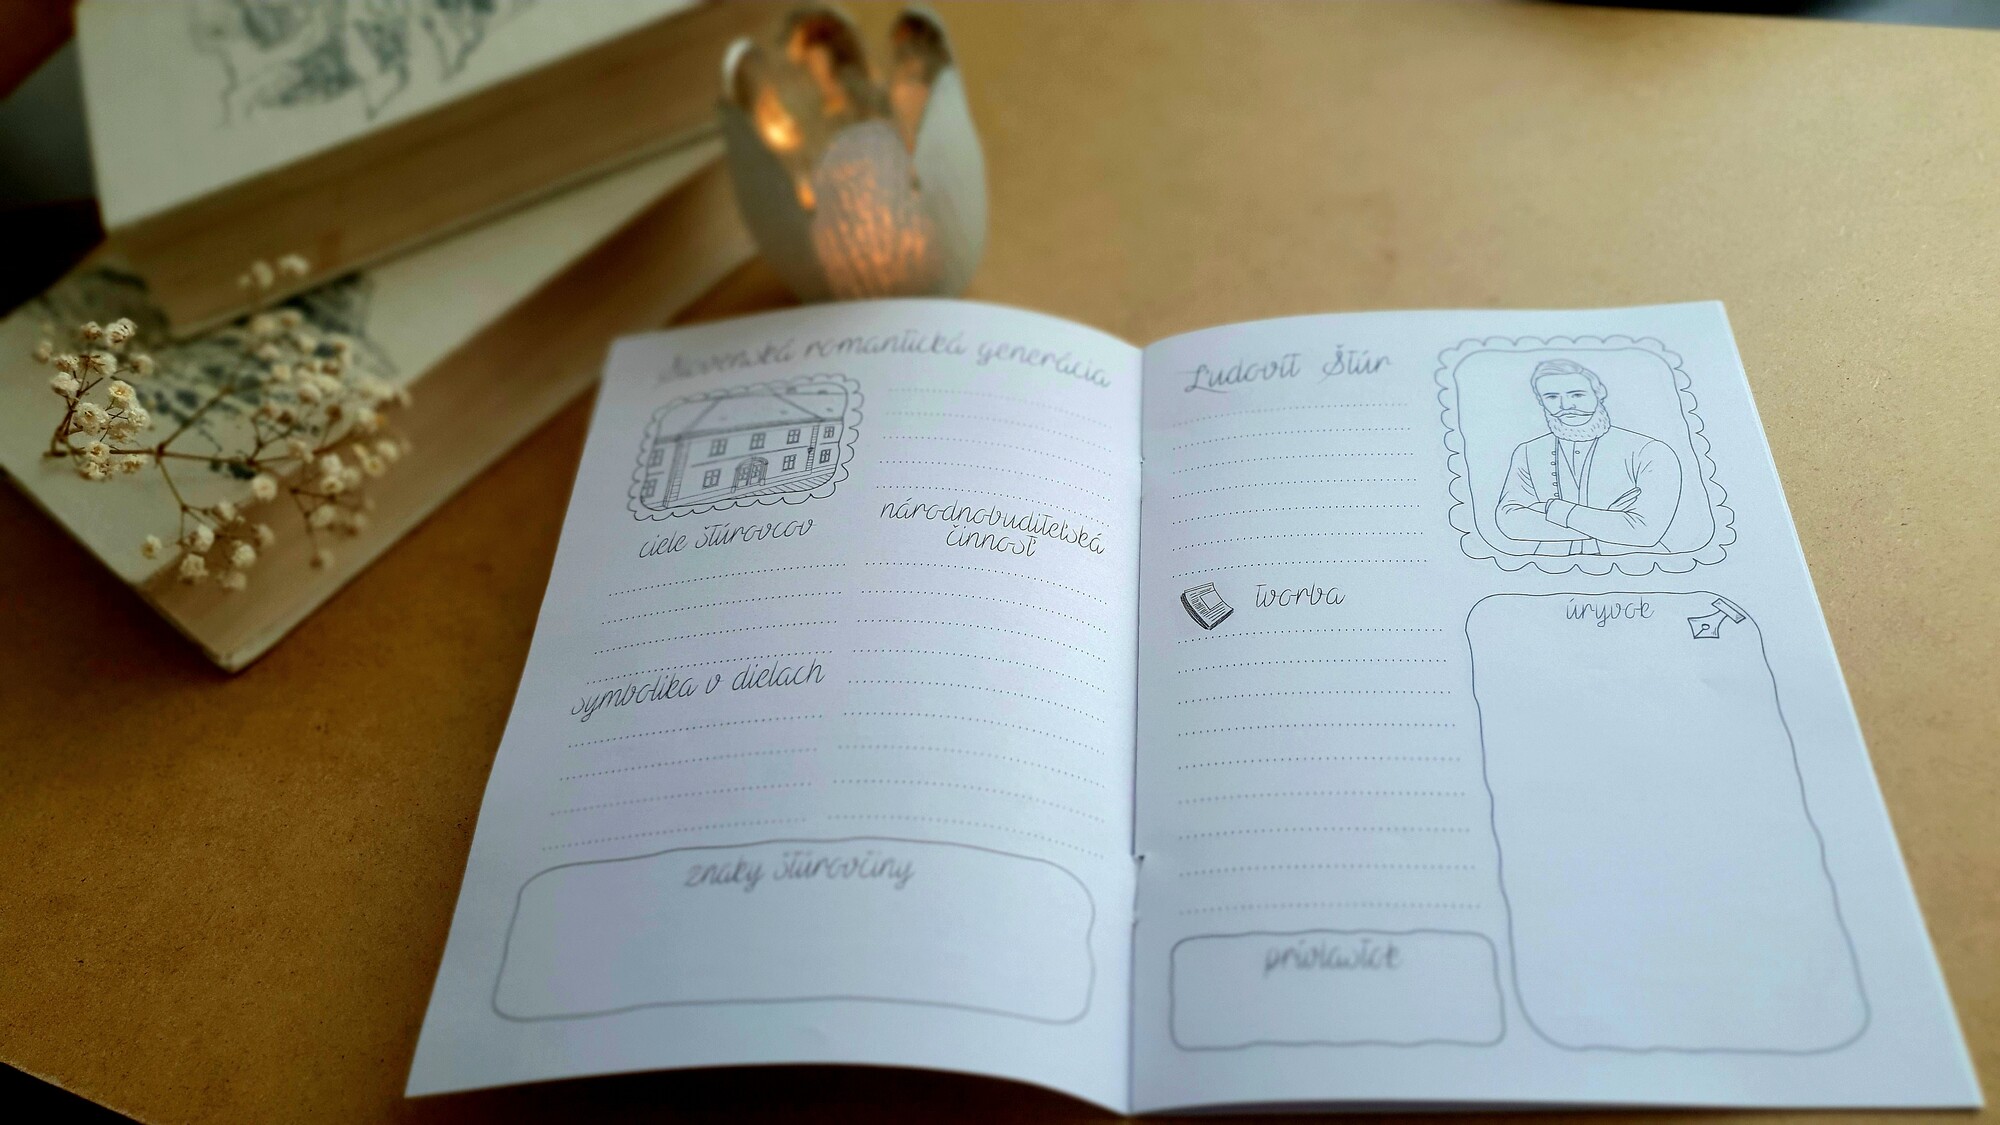 Slovenská romantická generácia
ciele štúrovcov
národnobuditeľská
činnosť
symbolika v dielach
znaky štúrovčiny
Ľudovít Štúr
tvorba
úryvok
prívlastok